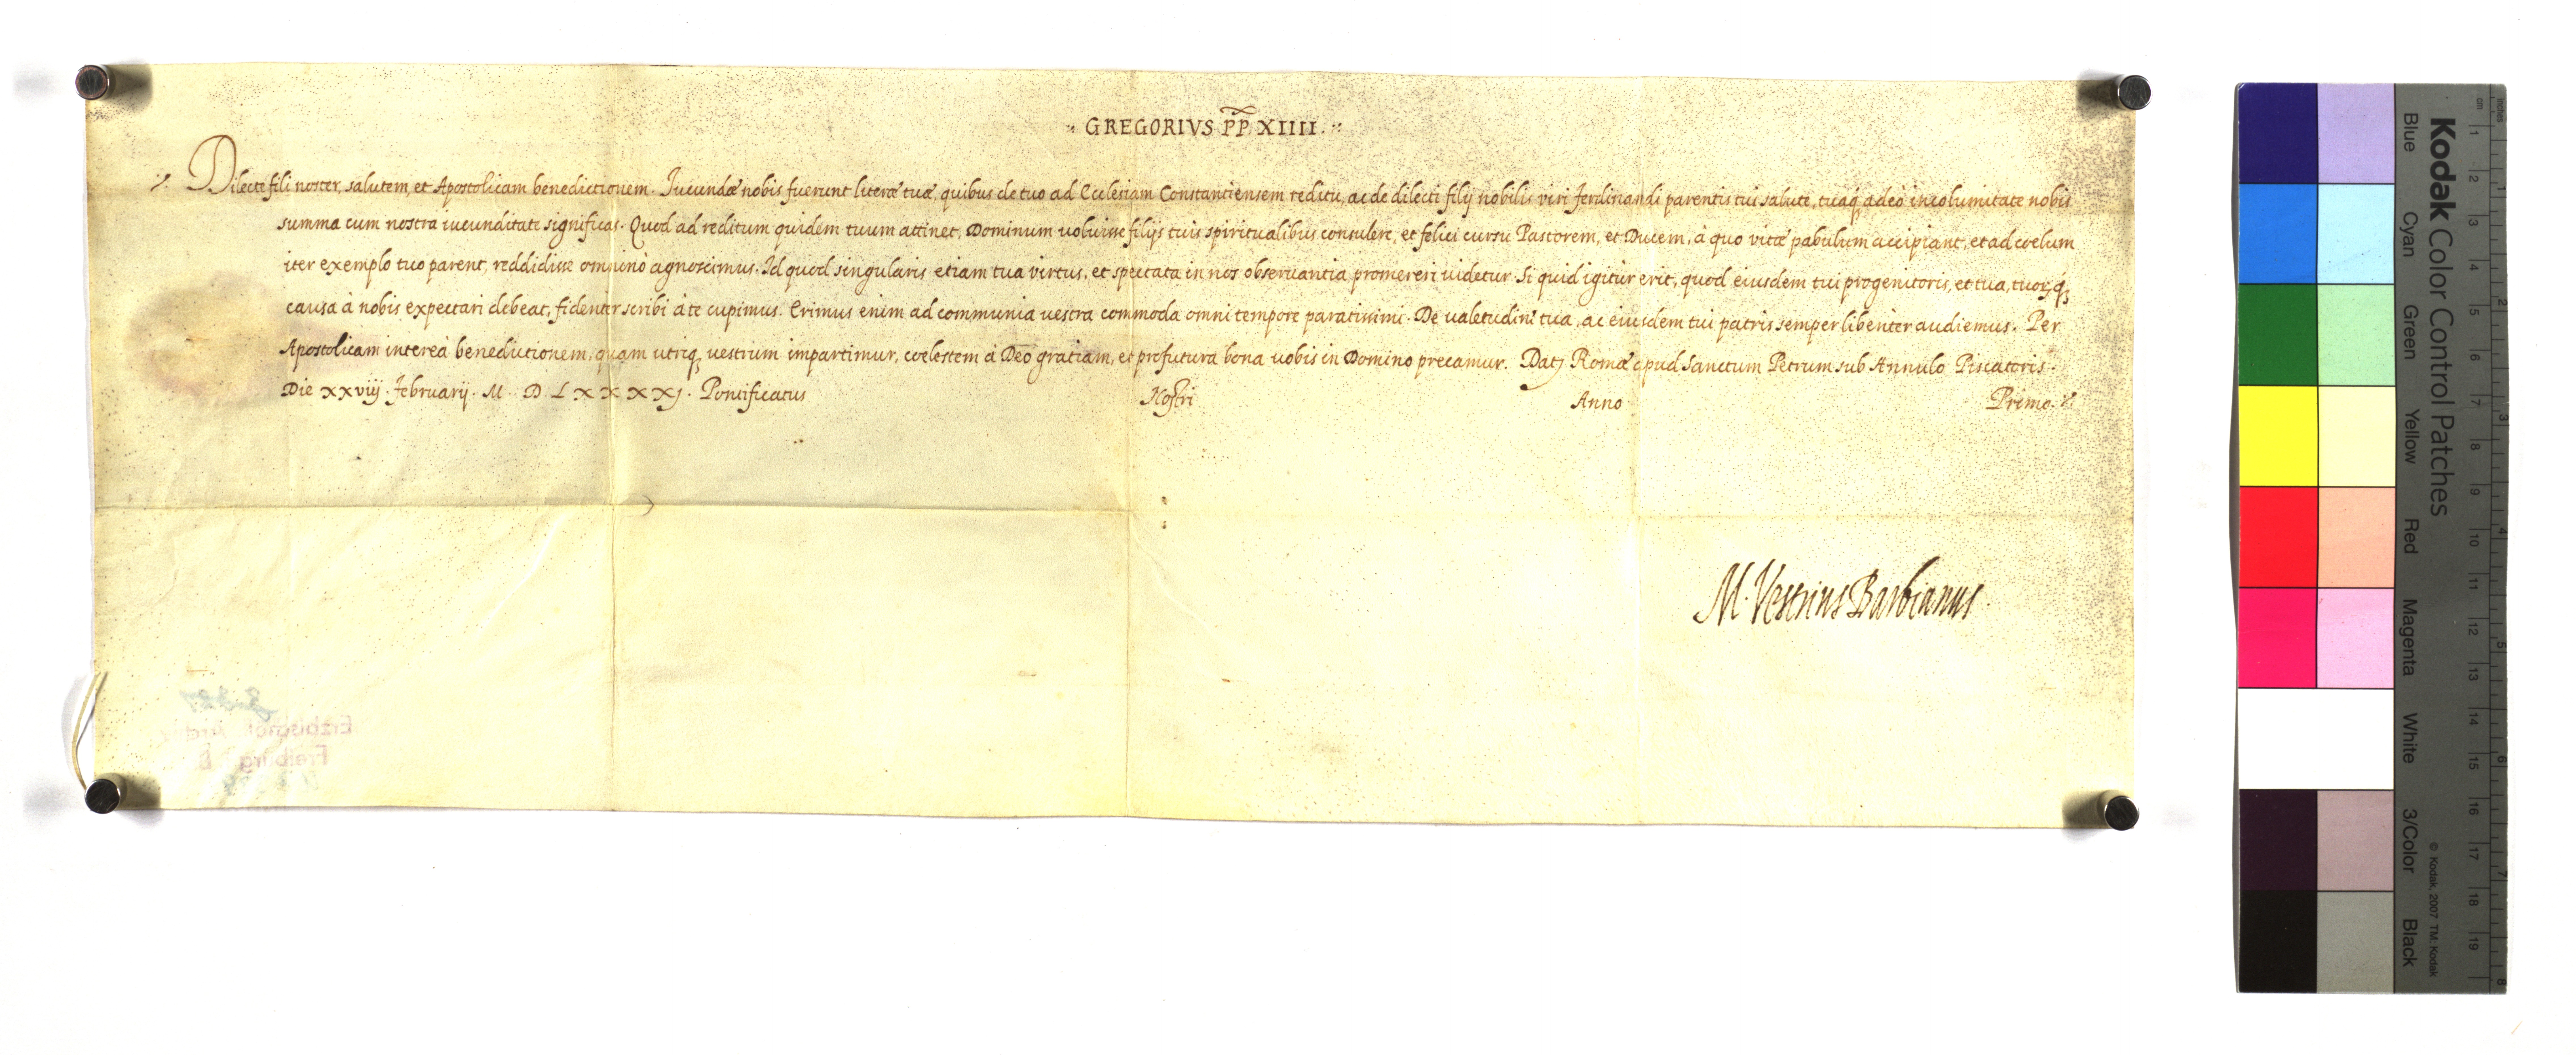 GREGORIVS PP XIIII.
Dilecte fili noster, salutem, et Apostolicam benedictionem. Iucundæ nobis fuerunt literæ tuæ, quibus de tuo ad Ecclesiam Constantiensem reditu, ac de dilecti filij nobilis viri Ferdinandi parentis tui salute, tuaq; adeò incolumitate nobis
summa cum nostra iucunditate significas. Quod ad reditum quidem tuum attinet, Dominum uoluisse filijs tuis spiritualibus consulere, et felici cursu Pastorem, et Ducem, à quo vitæ pabulum accipiant, et ad coelum
iter exemplo tuo parent, reddidisse omninò agnoscimus. Id quod singularis etiam tua virtus, et spectata in nos obseruantia promereri uidetur. Si quid igitur erit, quod eiusdem tui progenitoris, et tua, tuorꝝq;
causa à nobis expectari debeat, fidenter scribi à te cupimus. Erimus enim ad communia vestra commoda omni tempore paratissimi. De ualetudine tua, ac eiusdem tui patris semper libenter audiemus. Per
Apostolicam intereà benedictionem, quam utriq; vestrum impartimur, coelestem à Deo gratiam, et profutura bona uobis in Domino precamur. Datꝭ Romæ apud Sanctum Petrum sub Annulo Piscatoris.
Die xxviij. Februarij. M. D. LXXXXJ. Pontificatus Nostri Anno Primo.
M. Vestrius Barbianus
Erzbischöfl. Archiv
Freiburg
Kodak Color Control Patches
Blue Cyan Green Yellow Red Magenta White 3/Color Black
© Kodak, 2007 TM: Kodak
cm 1 2 3 4 5 6 7 8 9 10 11 12 13 14 15 16 17 18 19
inches 1 2 3 4 5 6 7 8